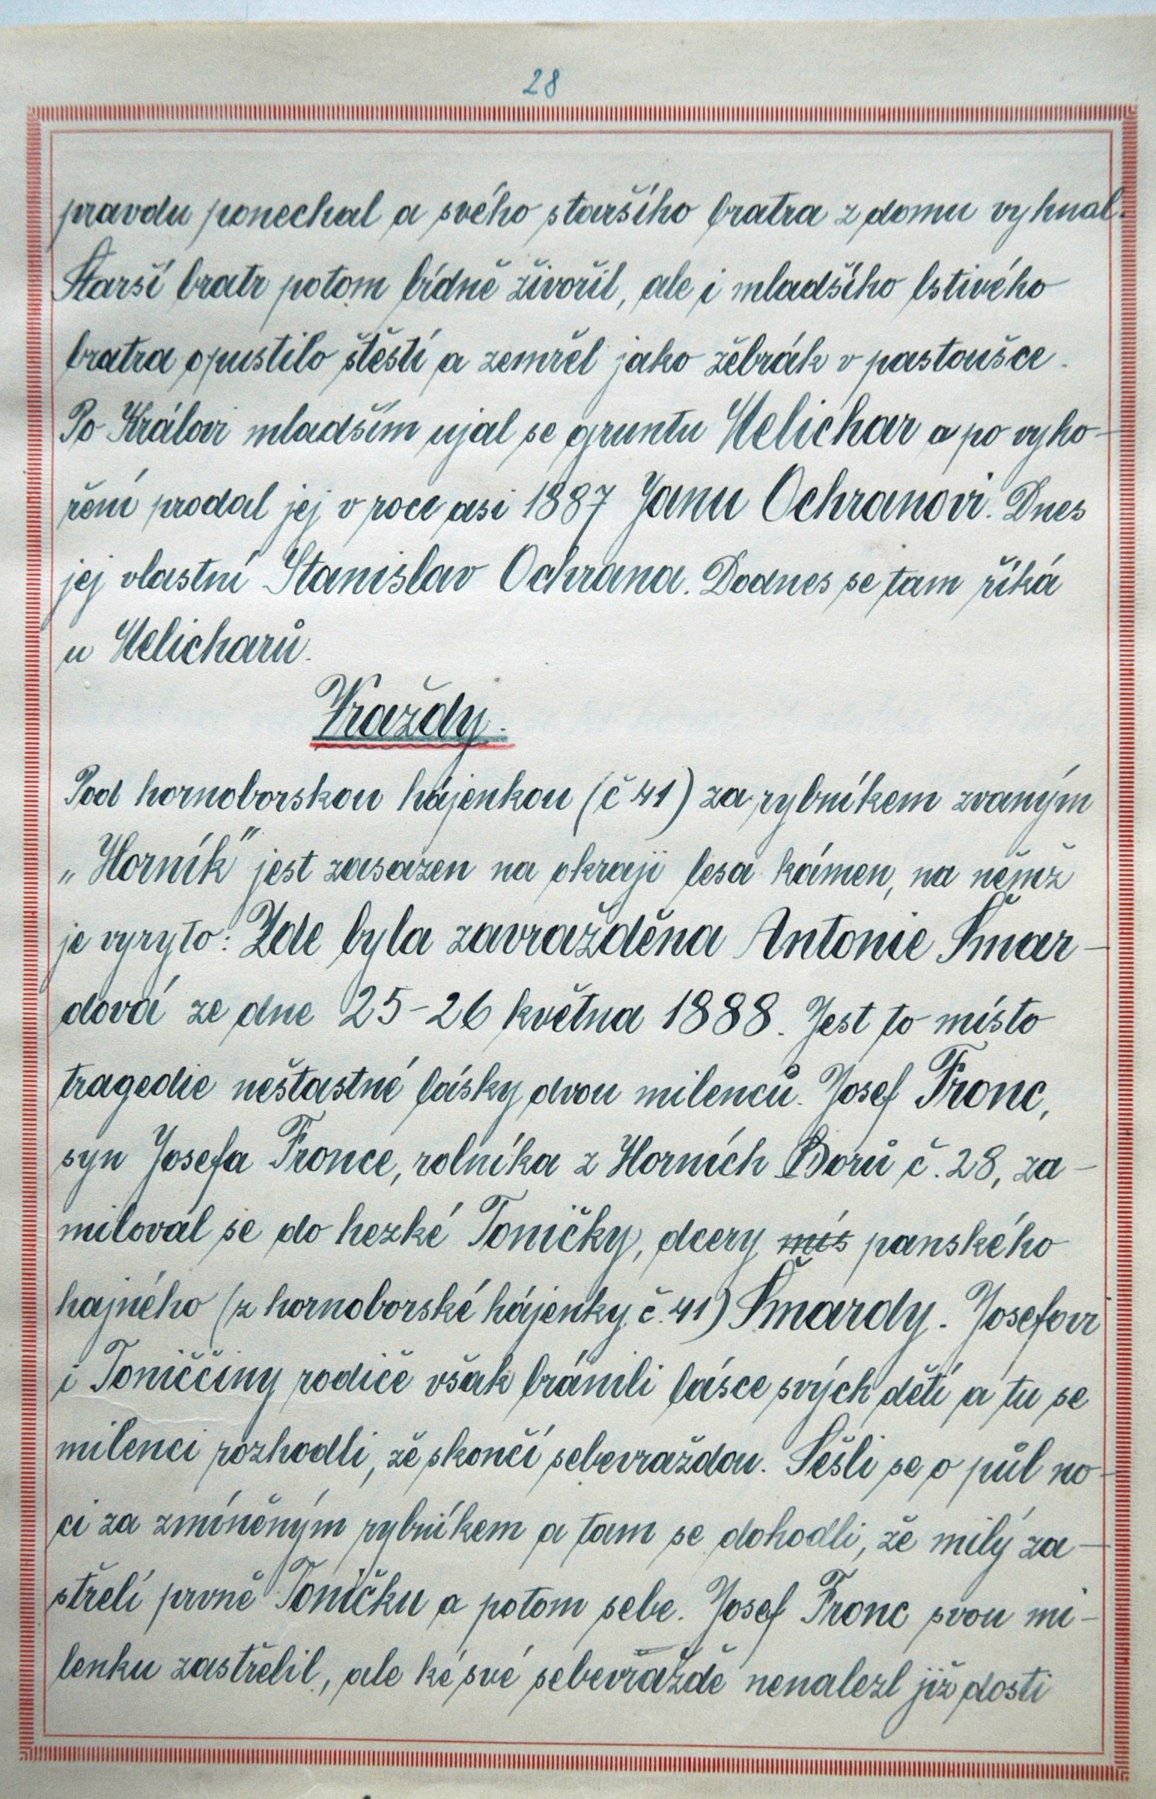 28
pravdu ponechal a svého staršího bratra z domu vyhnal.
Starší bratr potom bídně živořil, ale i mladšího lstivého
bratra opustilo štěstí a zemřel jako žebrák v pastoušce.
Po Královi mladším ujal se gruntu Melichar a po vyho-
ření prodal jej v roce asi 1887 Janu Ochranovi. Dnes
jej vlastní Stanislav Ochrana. Dodnes se tam říká
u Melicharů.
Vraždy.
Pod hornoborskou hájenkou (č 41) za rybníkem zvaným
„Horník" jest zasazen na okraji lesa kámen, na němž
je vyryto: Zde byla zavražděna Antonie Šmar-
dová ze dne 25-26 května 1888. Jest to místo
tragedie nešťastné lásky dvou milenců. Josef Fronc,
syn Josefa Fronce, rolníka z Horních Borů č. 28, za-
miloval se do hezké Toničky, dcery mís panského
hajného (z hornoborské hájenky č. 41) Šmardy. Josefovi
i Toniččiny rodiče však bránili lásce svých dětí a tu se
milenci rozhodli, že skončí sebevraždou. Sešli se o půl no-
ci za zmíněným rybníkem a tam se dohodli, že milý za-
střelí prvně Toničku a potom sebe. Josef Fronc svou mi-
lenku zastřelil, ale ke své sebevraždě nenalezl již dosti